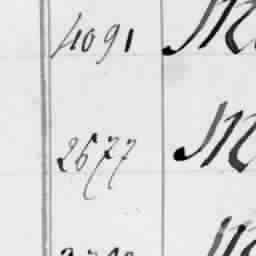 4091 M
2677 M